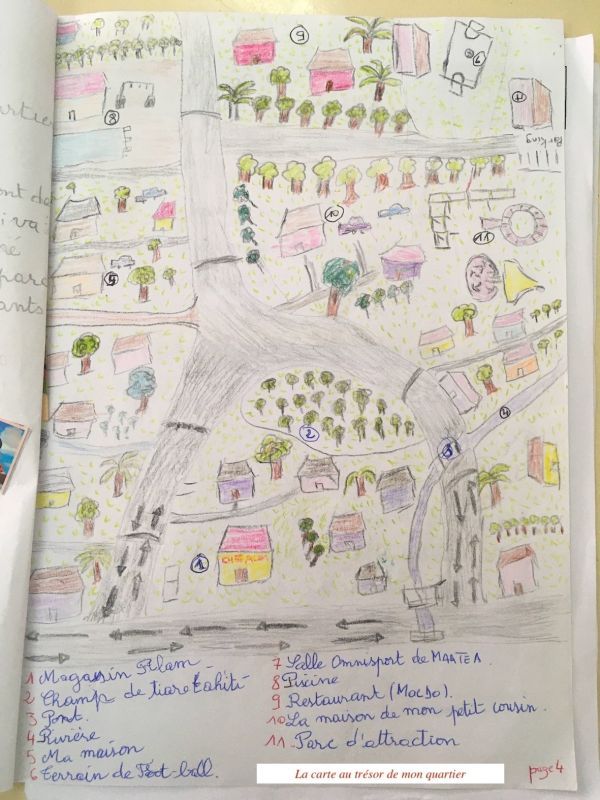 Parking
8
10
11
4
2
3
1
1 Magasin Alam
2 Champ de tiare tahiti
3 Pont.
4 Rivière
5 Ma maison
6 Terrain de Foot-ball.
7 Salle Omnisport de MAATEA.
8 Piscine
9 Restaurant (MacDo).
10 La maison de mon petit cousin.
11 Parc d'attraction
La carte au trésor de mon quartier
page 4